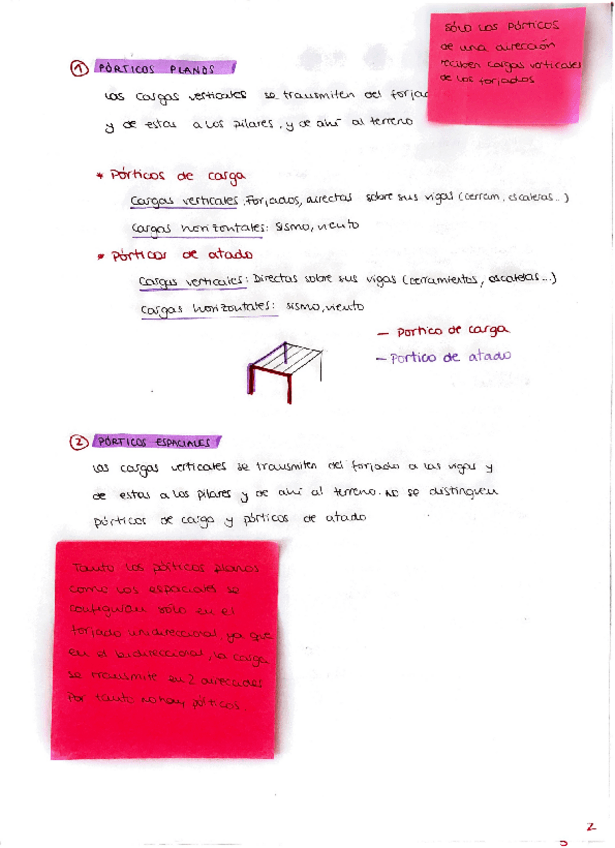 SÓLO LOS PÓRTICOS
de una dirección
reciben cargas verticales
de los forjados
① PÓRTICOS PLANOS
Las cargas verticales se transmiten del forjad
y de estas a los pilares, y de ahí al terreno
* Pórticos de carga
Cargas verticales: Forjados, directas sobre sus vigas (cerram, escaleras...)
Cargas horizontales: Sismo, viento
* Pórticos de atado
Cargas verticales: Directas sobre sus vigas (cerramientos, escaleras...)
Cargas horizontales: sismo, viento
— Portico de carga
— Portico de atado
② PÓRTICOS ESPACIALES
Las cargas verticales se transmiten del forjado a las vigas y
de estas a los pilares y de ahí al terreno. NO se distinguen
pórticos de carga y pórticos de atado
Tanto los pórticos planos
como los espaciales se
configuran sólo en el
forjado unidireccional, ya que
en el bidireccional, la carga
se transmite en 2 direcciones
Por tanto no hay pórticos
2